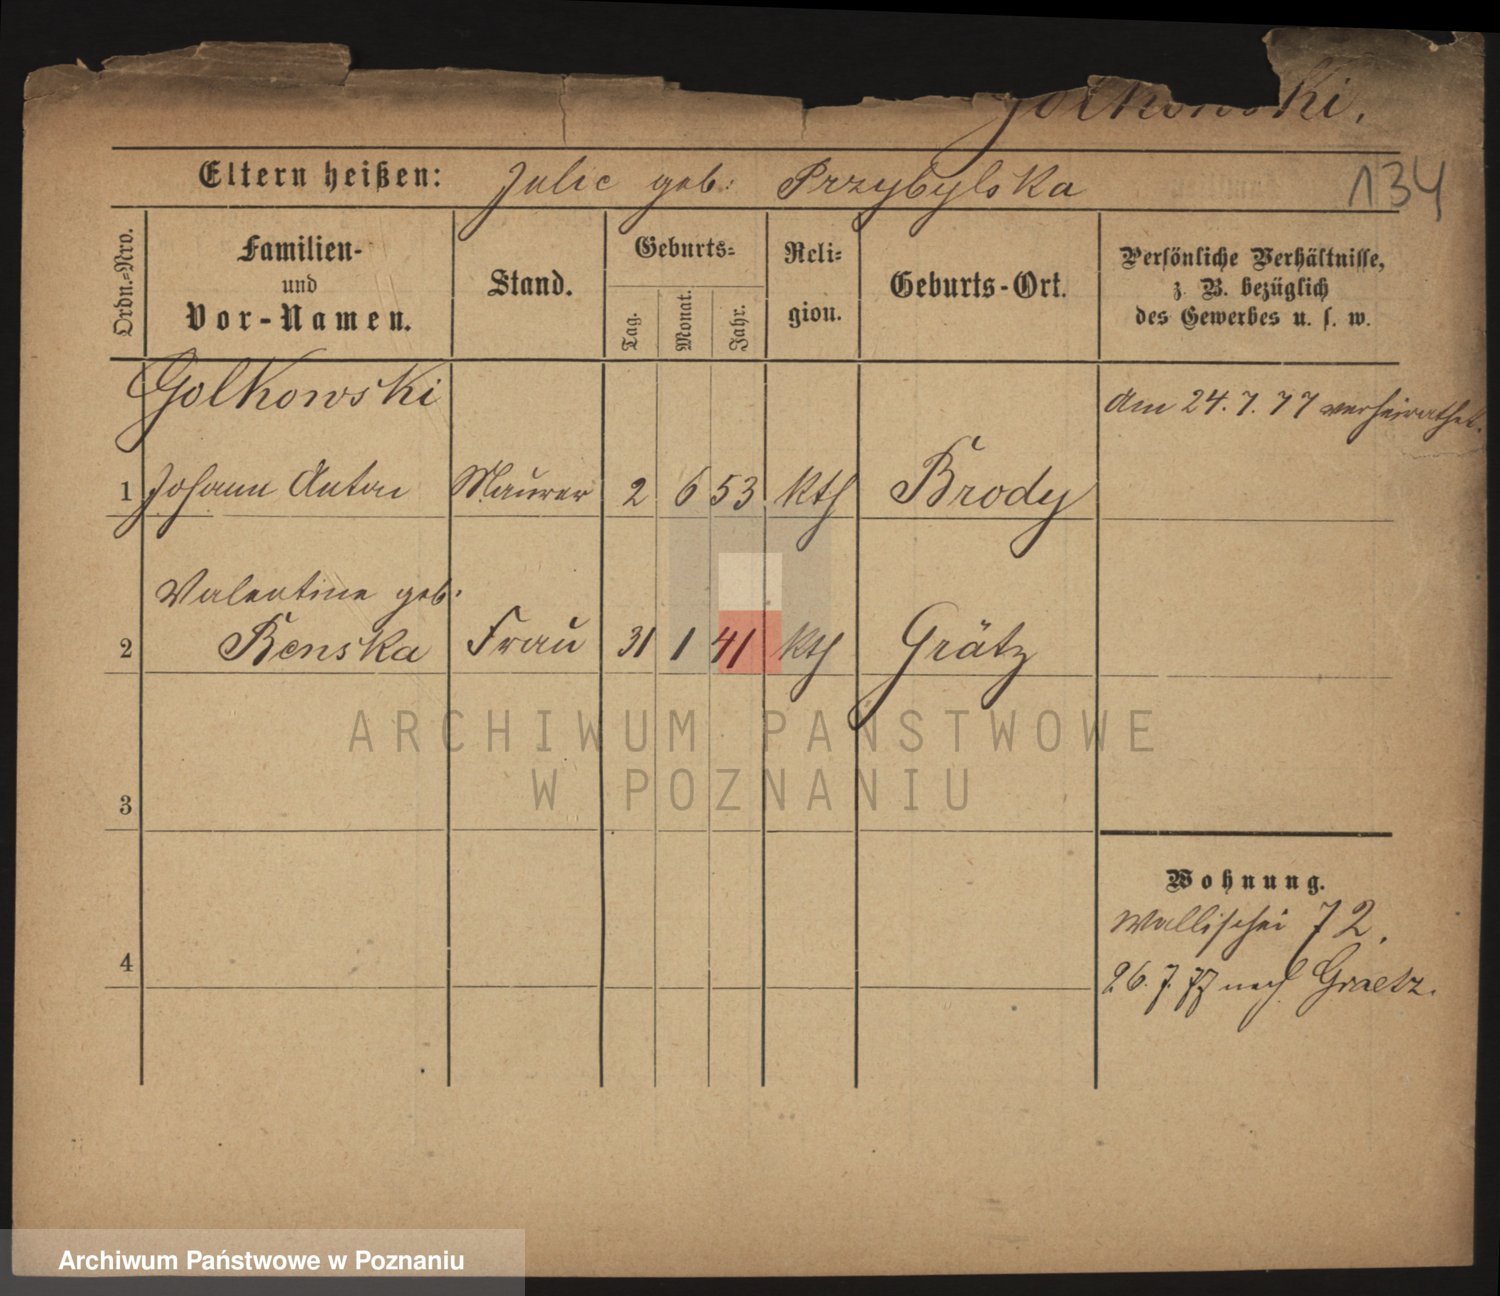 Golkowski.
134
Eltern heißen: Julie geb: Przybylska
Ordn.=Nro.
Familien-
und
Vor-Namen.
Stand.
Geburts=
Tag.
Monat.
Jahr.
Reli=
gion.
Geburts-Ort.
Persönliche Verhältnisse,
z. B. bezüglich
des Gewerbes u. s. w.
Golkowski
am 24.7.77 verheirathet.
1 Johann Anton Maurer 2 6 53 kth Brody
Valentine geb:
2 Benska Frau 31 1 41 kth Grätz
ARCHIWUM PAŃSTWOWE
W POZNANIU
3
Wohnung.
Wallischei 72.
4
26.7.77 nach Graetz.
Archiwum Państwowe w Poznaniu